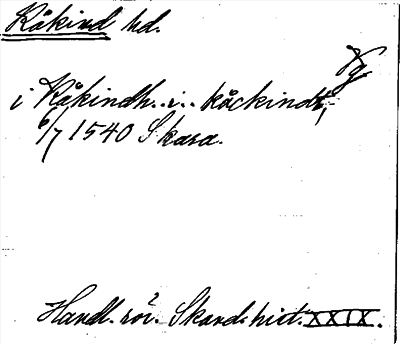 Kåkind hd.
Vg
i Kåkindh. i. kåckindh,
6/7 1540 Skara.
Handl. rör. Skand. hist. XXIX.